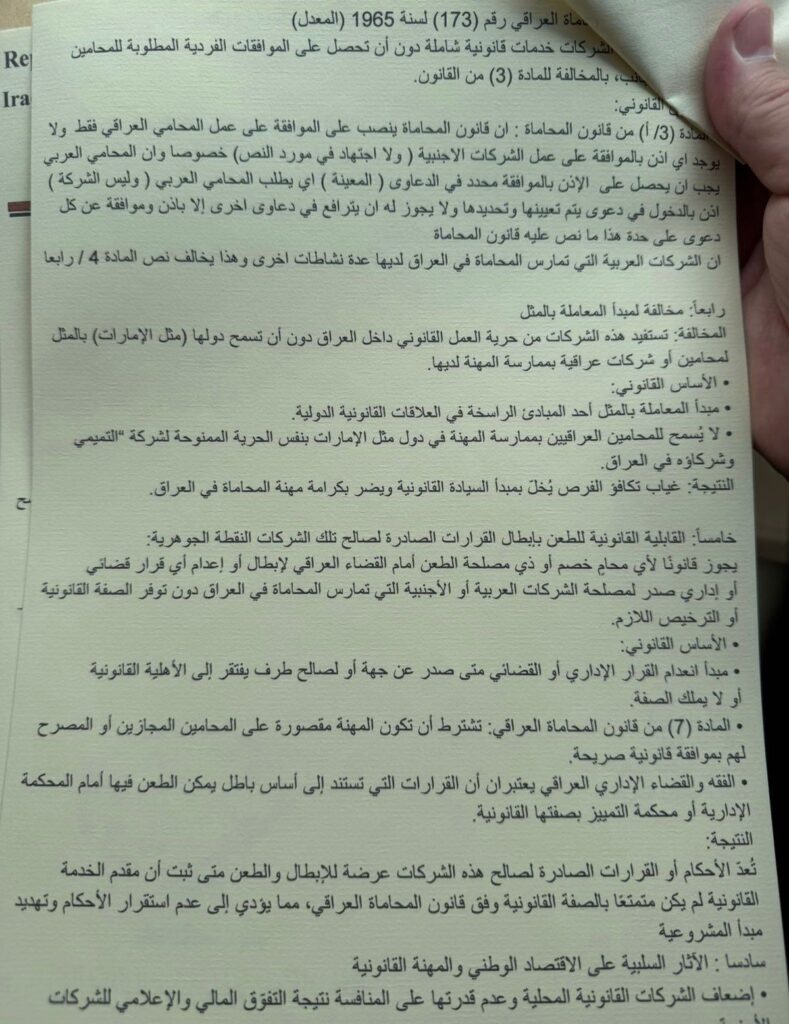 ماة العراقي رقم (173) لسنة 1965 (المعدل)
الشركات خدمات قانونية شاملة دون أن تحصل على الموافقات الفردية المطلوبة للمحامين
بالمخالفة للمادة (3) من القانون.
القانوني:
(3/ أ) من قانون المحاماة : ان قانون المحاماة ينصب على الموافقة على عمل المحامي العراقي فقط ولا
يوجد اي اذن بالموافقة على عمل الشركات الاجنبية ( ولا اجتهاد في مورد النص) خصوصا وان المحامي العربي
يجب ان يحصل على الإذن بالموافقة محدد في الدعاوى ( المعينة ) اي يطلب المحامي العربي ( وليس الشركة )
اذن بالدخول في دعوى يتم تعيينها وتحديدها ولا يجوز له ان يترافع في دعاوى اخرى إلا باذن وموافقة عن كل
دعوى على حدة هذا ما نص عليه قانون المحاماة
ان الشركات العربية التي تمارس المحاماة في العراق لديها عدة نشاطات اخرى وهذا يخالف نص المادة 4 / رابعا
رابعاً: مخالفة لمبدأ المعاملة بالمثل
المخالفة: تستفيد هذه الشركات من حرية العمل القانوني داخل العراق دون أن تسمح دولها (مثل الإمارات) بالمثل
لمحامين أو شركات عراقية بممارسة المهنة لديها.
• الأساس القانوني:
• مبدأ المعاملة بالمثل أحد المبادئ الراسخة في العلاقات القانونية الدولية.
• لا يُسمح للمحامين العراقيين بممارسة المهنة في دول مثل الإمارات بنفس الحرية الممنوحة لشركة “التميمي
وشركاؤه في العراق.
النتيجة: غياب تكافؤ الفرص يُخلّ بمبدأ السيادة القانونية ويضر بكرامة مهنة المحاماة في العراق.
خامساً: القابلية القانونية للطعن بإبطال القرارات الصادرة لصالح تلك الشركات النقطة الجوهرية:
يجوز قانونًا لأي محامٍ خصم أو ذي مصلحة الطعن أمام القضاء العراقي لإبطال أو إعدام أي قرار قضائي
أو إداري صدر لمصلحة الشركات العربية أو الأجنبية التي تمارس المحاماة في العراق دون توفر الصفة القانونية
أو الترخيص اللازم.
• الأساس القانوني:
• مبدأ انعدام القرار الإداري أو القضائي متى صدر عن جهة أو لصالح طرف يفتقر إلى الأهلية القانونية
أو لا يملك الصفة.
• المادة (7) من قانون المحاماة العراقي: تشترط أن تكون المهنة مقصورة على المحامين المجازين أو المصرح
لهم بموافقة قانونية صريحة.
• الفقه والقضاء الإداري العراقي يعتبران أن القرارات التي تستند إلى أساس باطل يمكن الطعن فيها أمام المحكمة
الإدارية أو محكمة التمييز بصفتها القانونية.
النتيجة:
تُعدّ الأحكام أو القرارات الصادرة لصالح هذه الشركات عرضة للإبطال والطعن متى ثبت أن مقدم الخدمة
القانونية لم يكن متمتعًا بالصفة القانونية وفق قانون المحاماة العراقي، مما يؤدي إلى عدم استقرار الأحكام وتهديد
مبدأ المشروعية
سادسا : الآثار السلبية على الاقتصاد الوطني والمهنة القانونية
• إضعاف الشركات القانونية المحلية وعدم قدرتها على المنافسة نتيجة التفوّق المالي والإعلامي للشركات
Re
Ira